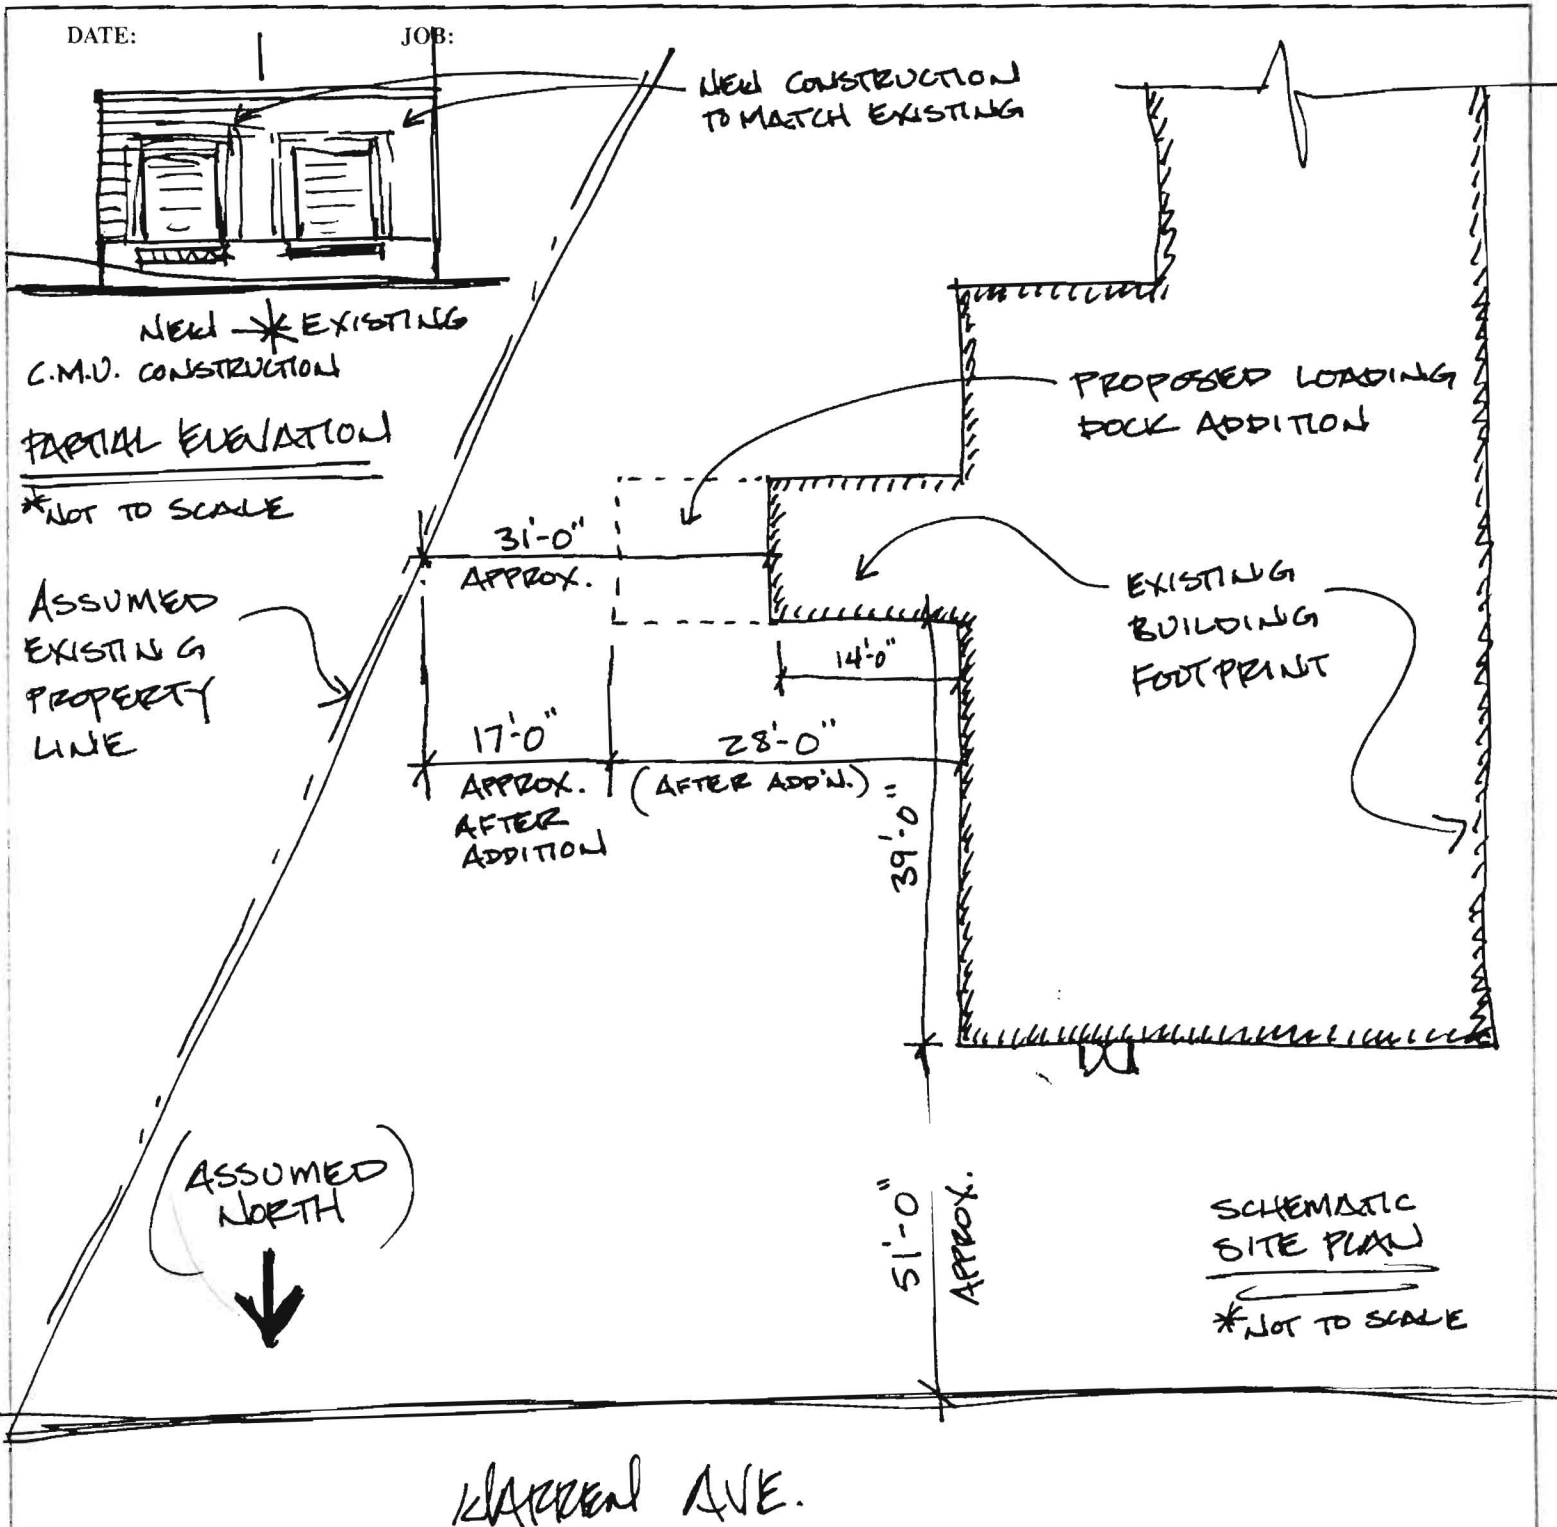 DATE:
JOB:
NEW CONSTRUCTION
TO MATCH EXISTING
NEW EXISTING
C.M.U. CONSTRUCTION
PARTIAL ELEVATION
*NOT TO SCALE
PROPOSED LOADING
DOCK ADDITION
31'-0"
APPROX.
ASSUMED
EXISTING
PROPERTY
LINE
EXISTING
BUILDING
FOOTPRINT
14'-0"
17'-0"
APPROX.
AFTER
ADDITION
28'-0"
(AFTER ADD'N.)
39'-0"
(ASSUMED
NORTH)
51'-0"
APPROX.
SCHEMATIC
SITE PLAN
*NOT TO SCALE
WARREN AVE.